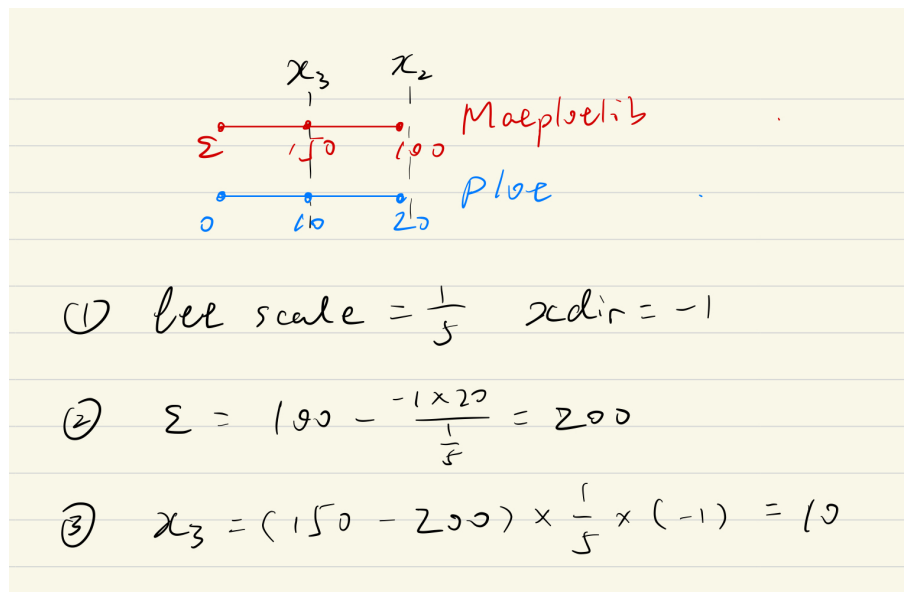 x₃ x₂
Σ 150 100 Matplotlib
0 10 20 Plot
① let scale = 1/5 xdir = -1
② Σ = 100 - (-1 × 20)/(1/5) = 200
③ x₃ = (150 - 200) × 1/5 × (-1) = 10